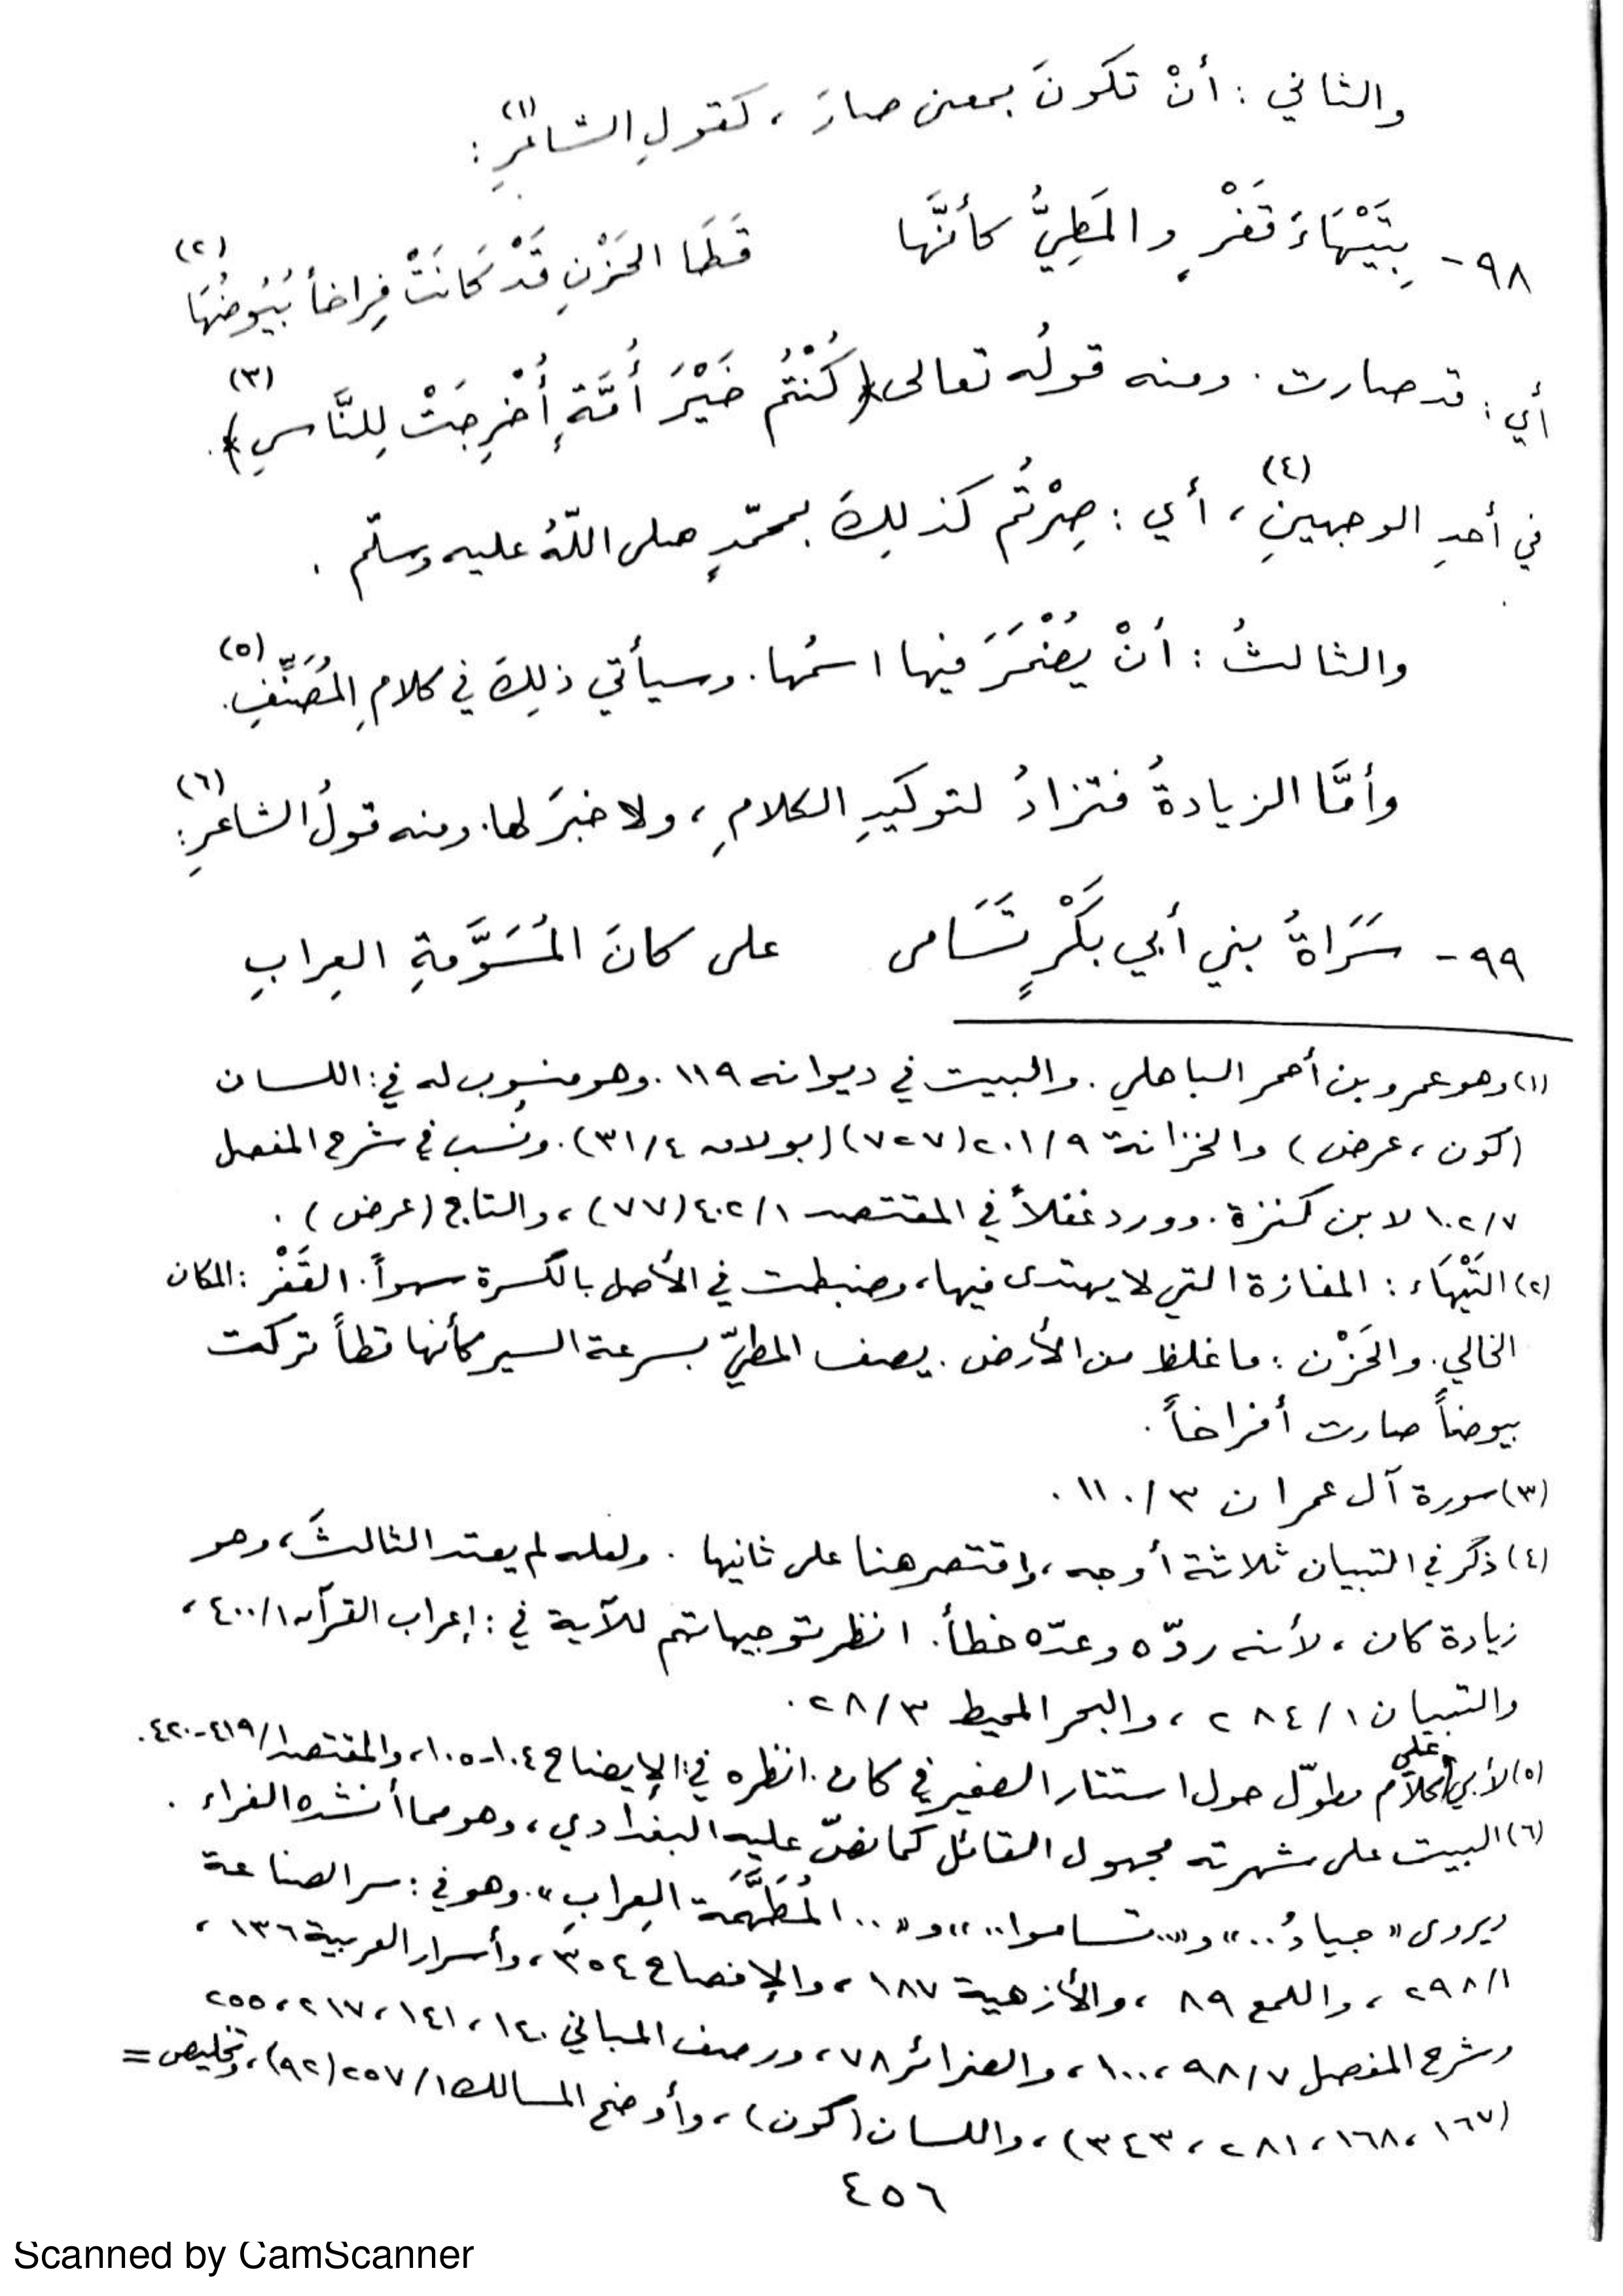 والثاني : أنْ تكونَ بمعنى صارَ ، كقولِ الشاعرِ(١) :
٩٨ - بِتَيْهَاءَ قَفْرٍ والمَطِيُّ كأنَّها قَطَا الحَزْنِ قَدْ كَانَتْ فِراخاً بُيُوضُهَا(٢)
أي : قد صارت . ومنه قولُه تعالى ﴿كُنْتُم خَيْرَ أُمَّةٍ أُخْرِجَتْ لِلنَّاسِ﴾(٣) .
في أحدِ الوجهينِ(٤) ، أي : صِرْتُم كذلِكَ بمحمّدٍ صلى اللّهُ عليه وسلّم .
والثالثُ : أنْ يُضْمَرَ فيها اسمُها . وسيأتي ذلِكَ في كلامِ المُصَنِّفِ(٥) .
وأمَّا الزيادةُ فتزادُ لتوكيدِ الكلامِ ، ولا خبرَ لها . ومنه قولُ الشاعرِ(٦) :
٩٩ - سَرَاةُ بني أبي بَكْرٍ تَسَامى على كانَ المُسَوَّمةِ العِرابِ
(١) وهو عمرو بن أحمر الباهلي . والبيت في ديوانه ١١٩ . وهو منسوب له في : اللسان
(كون ، عرض ) والخزانة ٢٠١/٩ (٧٢٧) (بولاق ٣١/٤) . ونسب في شرح المفصل
١٠٢/٧ لابن كنزة . وورد غفلاً في المقتصد ٤٠٢/١ (٧٧) ، والتاج (عرض ) .
(٢) التَيْهَاء : المفازة التي لا يهتدى فيها ، وضبطت في الأصل بالكسرة سهواً . القَفْر : المكان
الخالي . والحَزْن : ما غلظ من الأرض . يصف المطيّ بسرعة السير كأنها قطاً تركت
بيوضاً صارت أفراخاً .
(٣) سورة آل عمران ١١٠/٣ .
(٤) ذكر في التبيان ثلاثة أوجه ، واقتصر هنا على ثانيها . ولعله لم يعتد الثالثَ ، وهو
زيادة كان ، لأنه ردّه وعدّه خطأ . انظر توجيهاتهم للآية في : إعراب القرآن ٤٠٠/١ ،
والتبيان ٢٨٤/١ ، والبحر المحيط ٢٨/٣ .
(٥) لأبي علي كلام مطوّل حول استتار الضمير في كان . انظره في : الإيضاح ١٠٤-١٠٥ ، والمقتصد ٤١٩/١-٤٢٠ .
(٦) البيت على شهرته مجهول القائل كما نصّ عليه البغدادي ، وهو مما أنشده الفراء .
ويروى « جيادُ .. » و « .. تساموا .. » و « .. المُطَهَّمَة العِرابِ » . وهو في : سر الصناعة
٢٩٨/١ ، واللمع ٨٩ ، والأزهية ١٨٧ ، والإفصاح ٣٥٤ ، وأسرار العربية ١٣٦ ،
وشرح المفصل ٩٨/٧ ، ١٠٠ ، والضرائر ٧٨ ، ورصف المباني ١٤٠ ، ١٤١ ، ٢١٧ ، ٢٥٥
(١٦٧ ، ١٦٨ ، ٢٨١ ، ٣٤٣) ، واللسان (كون) ، وأوضح المسالك ٢٥٧/١ (٩٢) ، وتخليص =
٤٥٦
Scanned by CamScanner